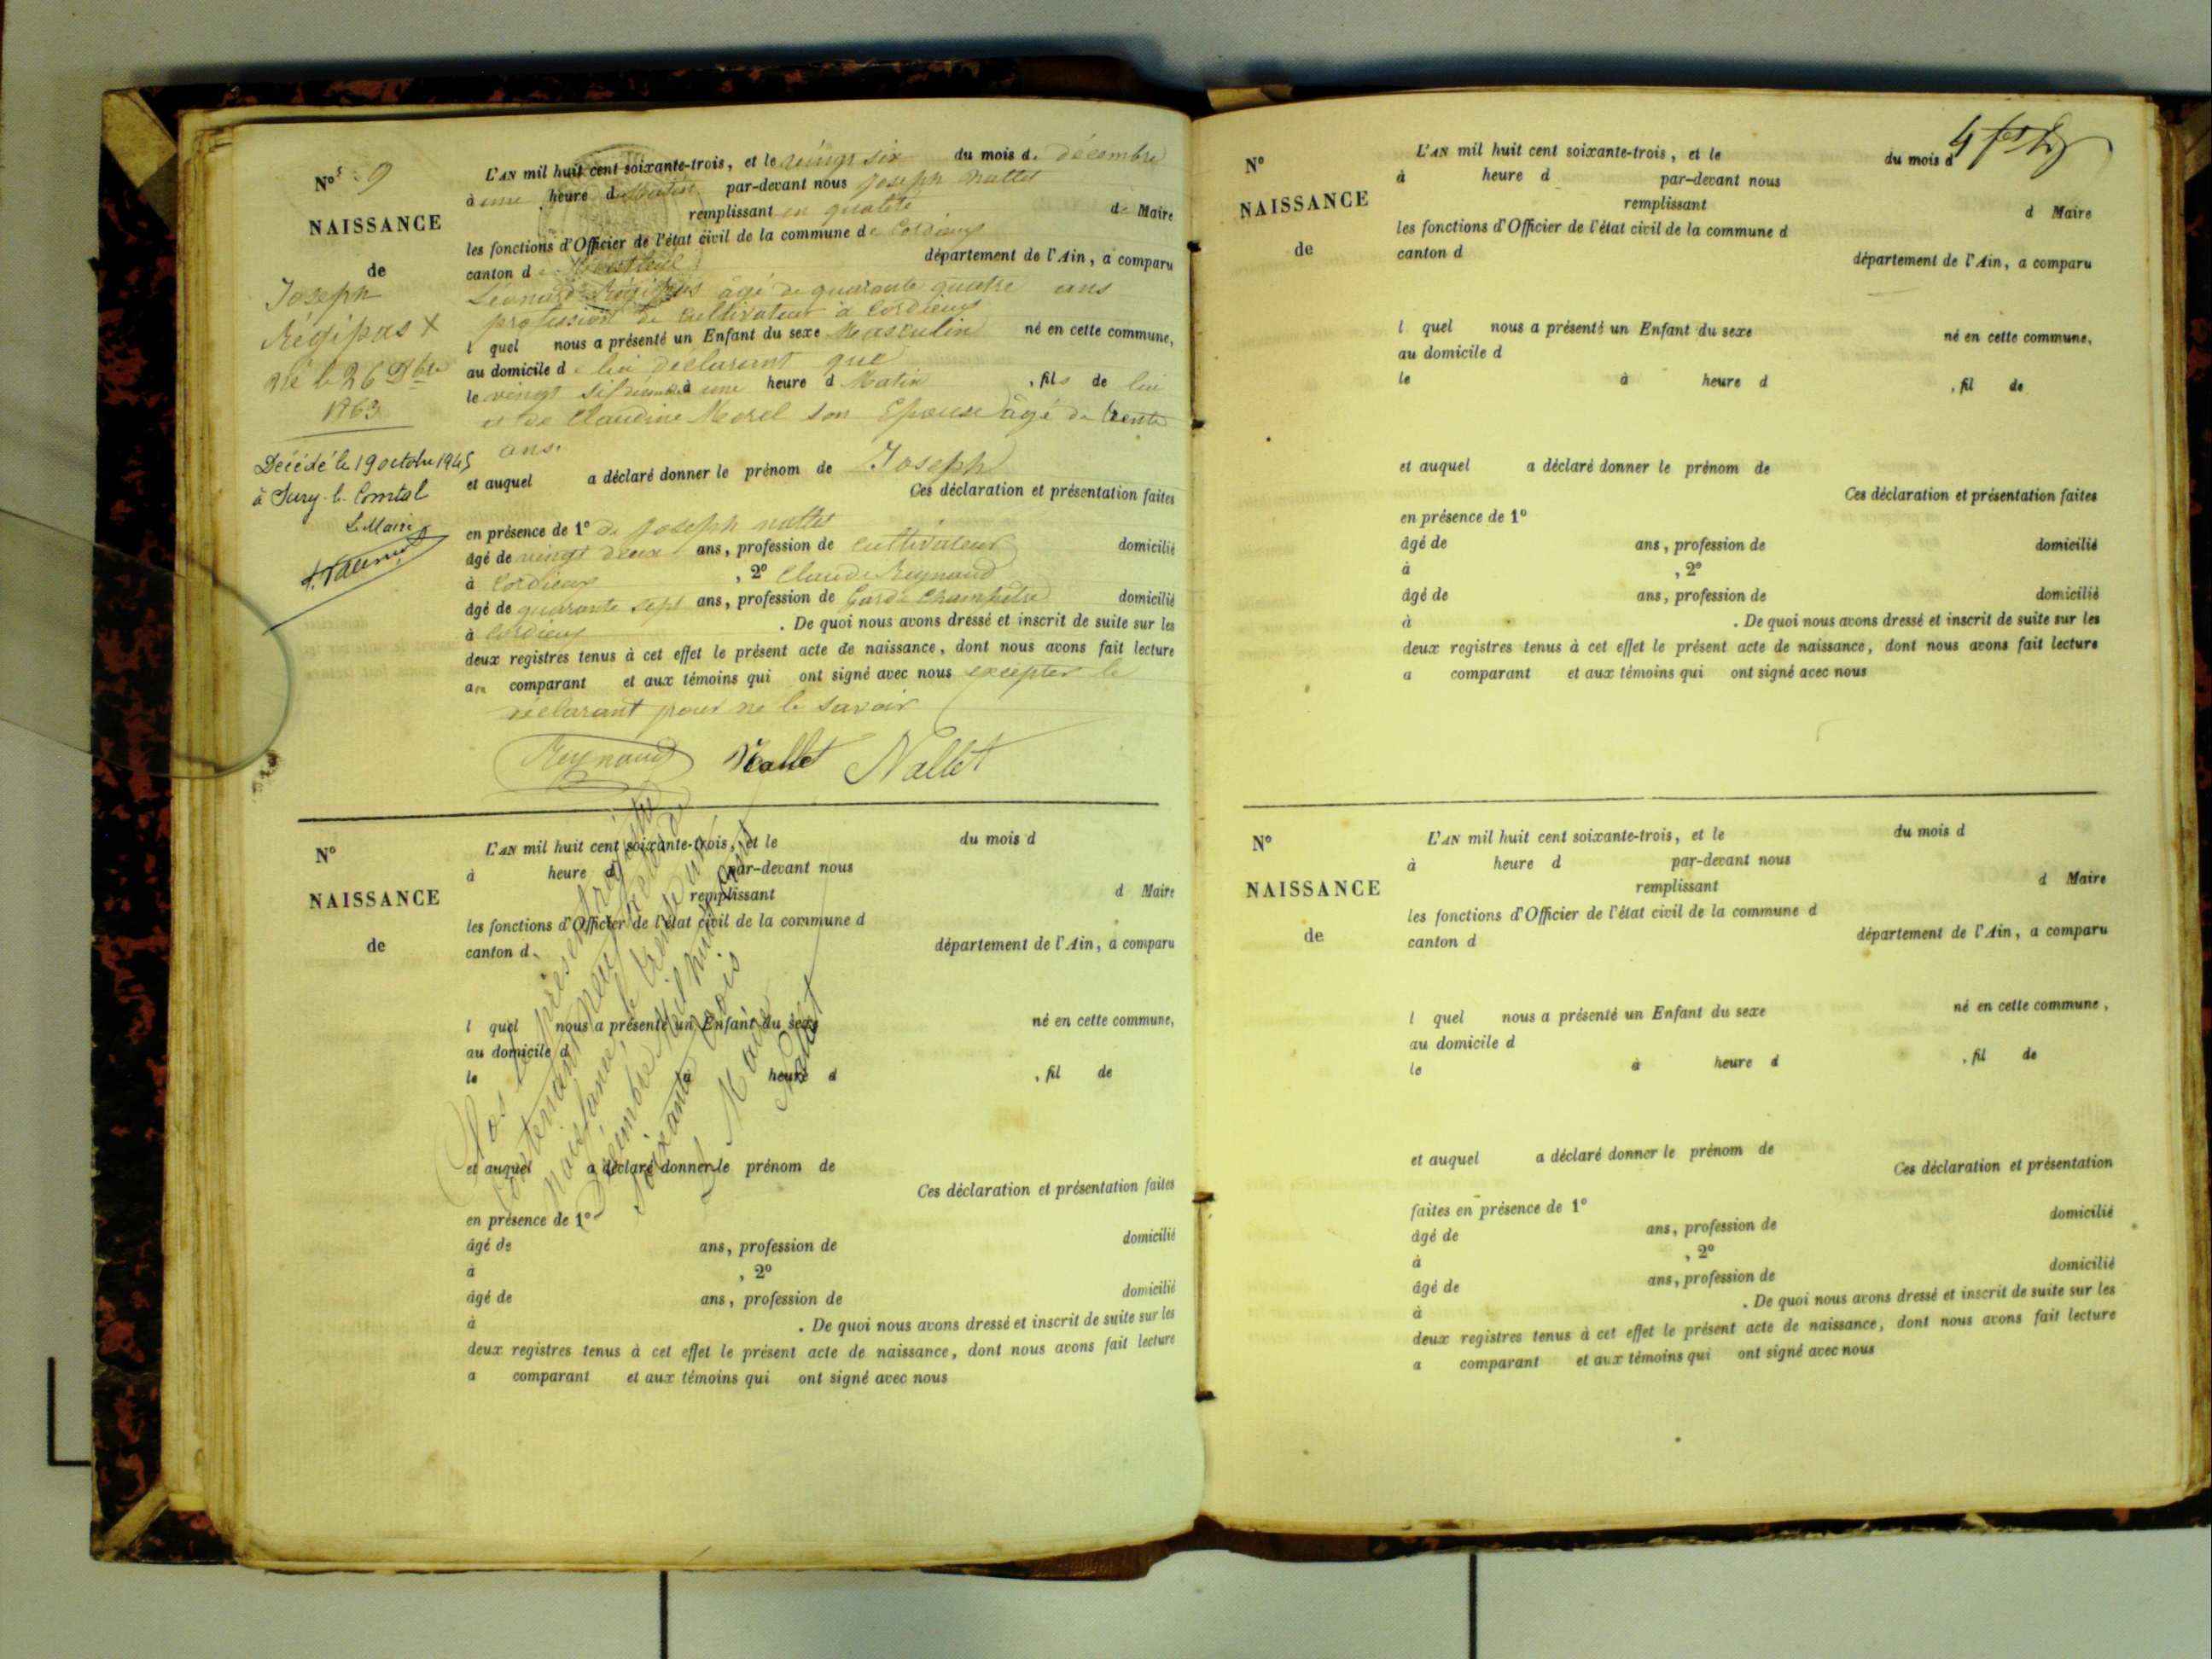 Nos 9
NAISSANCE
de
Joseph
Régipas X
né le 26 Xbre
1863
Décédé le 19 octobre 1945
à Sury-le-Comtal
Le Maire
L'AN mil huit cent soixante-trois, et le vingt six du mois de décembre
à une heure du Matin par-devant nous joseph nallet
remplissant en qualité de Maire
les fonctions d'Officier de l'état civil de la commune de Cordieux
canton de Montluel département de l'Ain, a comparu
Léonard Régipas âgé de quarante quatre ans
profession de Cultivateur à Cordieux
l quel nous a présenté un Enfant du sexe Masculin né en cette commune,
au domicile de lui déclarant que
le vingt six décembre à une heure d Matin, fils de lui
et de Claudine Morel son Epouse âgé de trente
ans.
et auquel a déclaré donner le prénom de Joseph
Ces déclaration et présentation faites
en présence de 1° de joseph nallet
âgé de vingt deux ans, profession de cultivateur domicilié
à Cordieux, 2° Claude Reynaud
âgé de quarante sept ans, profession de Garde Champêtre domicilié
à Cordieux. De quoi nous avons dressé et inscrit de suite sur les
deux registres tenus à cet effet le présent acte de naissance, dont nous avons fait lecture
au comparant et aux témoins qui ont signé avec nous excepter le
déclarant pour ne le savoir
Reynaud Nallet Nallet
N°
NAISSANCE
de
L'AN mil huit cent soixante-trois, et le du mois d
à heure d par-devant nous
remplissant d Maire
les fonctions d'Officier de l'état civil de la commune d
canton d département de l'Ain, a comparu
l quel nous a présenté un Enfant du sexe né en cette commune,
au domicile d
le à heure d, fil de
et auquel a déclaré donner le prénom de
Ces déclaration et présentation faites
en présence de 1°
âgé de ans, profession de domicilié
à, 2°
âgé de ans, profession de domicilié
à. De quoi nous avons dressé et inscrit de suite sur les
deux registres tenus à cet effet le présent acte de naissance, dont nous avons fait lecture
a comparant et aux témoins qui ont signé avec nous
Clos le présent registre
contenant neuf actes de
naissance, le trente un
Décembre Mil huit cent
soixante trois
Le Maire
Nallet
N°
NAISSANCE
de
L'AN mil huit cent soixante-trois, et le du mois d
à heure d par-devant nous
remplissant d Maire
les fonctions d'Officier de l'état civil de la commune d
canton d département de l'Ain, a comparu
l quel nous a présenté un Enfant du sexe né en cette commune,
au domicile d
le à heure d, fil de
et auquel a déclaré donner le prénom de
Ces déclaration et présentation faites
en présence de 1°
âgé de ans, profession de domicilié
à, 2°
âgé de ans, profession de domicilié
à. De quoi nous avons dressé et inscrit de suite sur les
deux registres tenus à cet effet le présent acte de naissance, dont nous avons fait lecture
a comparant et aux témoins qui ont signé avec nous
N°
NAISSANCE
de
L'AN mil huit cent soixante-trois, et le du mois d
à heure d par-devant nous
remplissant d Maire
les fonctions d'Officier de l'état civil de la commune d
canton d département de l'Ain, a comparu
l quel nous a présenté un Enfant du sexe né en cette commune,
au domicile d
le à heure d, fil de
et auquel a déclaré donner le prénom de
Ces déclaration et présentation
faites en présence de 1°
âgé de ans, profession de domicilié
à, 2°
âgé de ans, profession de domicilié
à. De quoi nous avons dressé et inscrit de suite sur les
deux registres tenus à cet effet le présent acte de naissance, dont nous avons fait lecture
a comparant et aux témoins qui ont signé avec nous